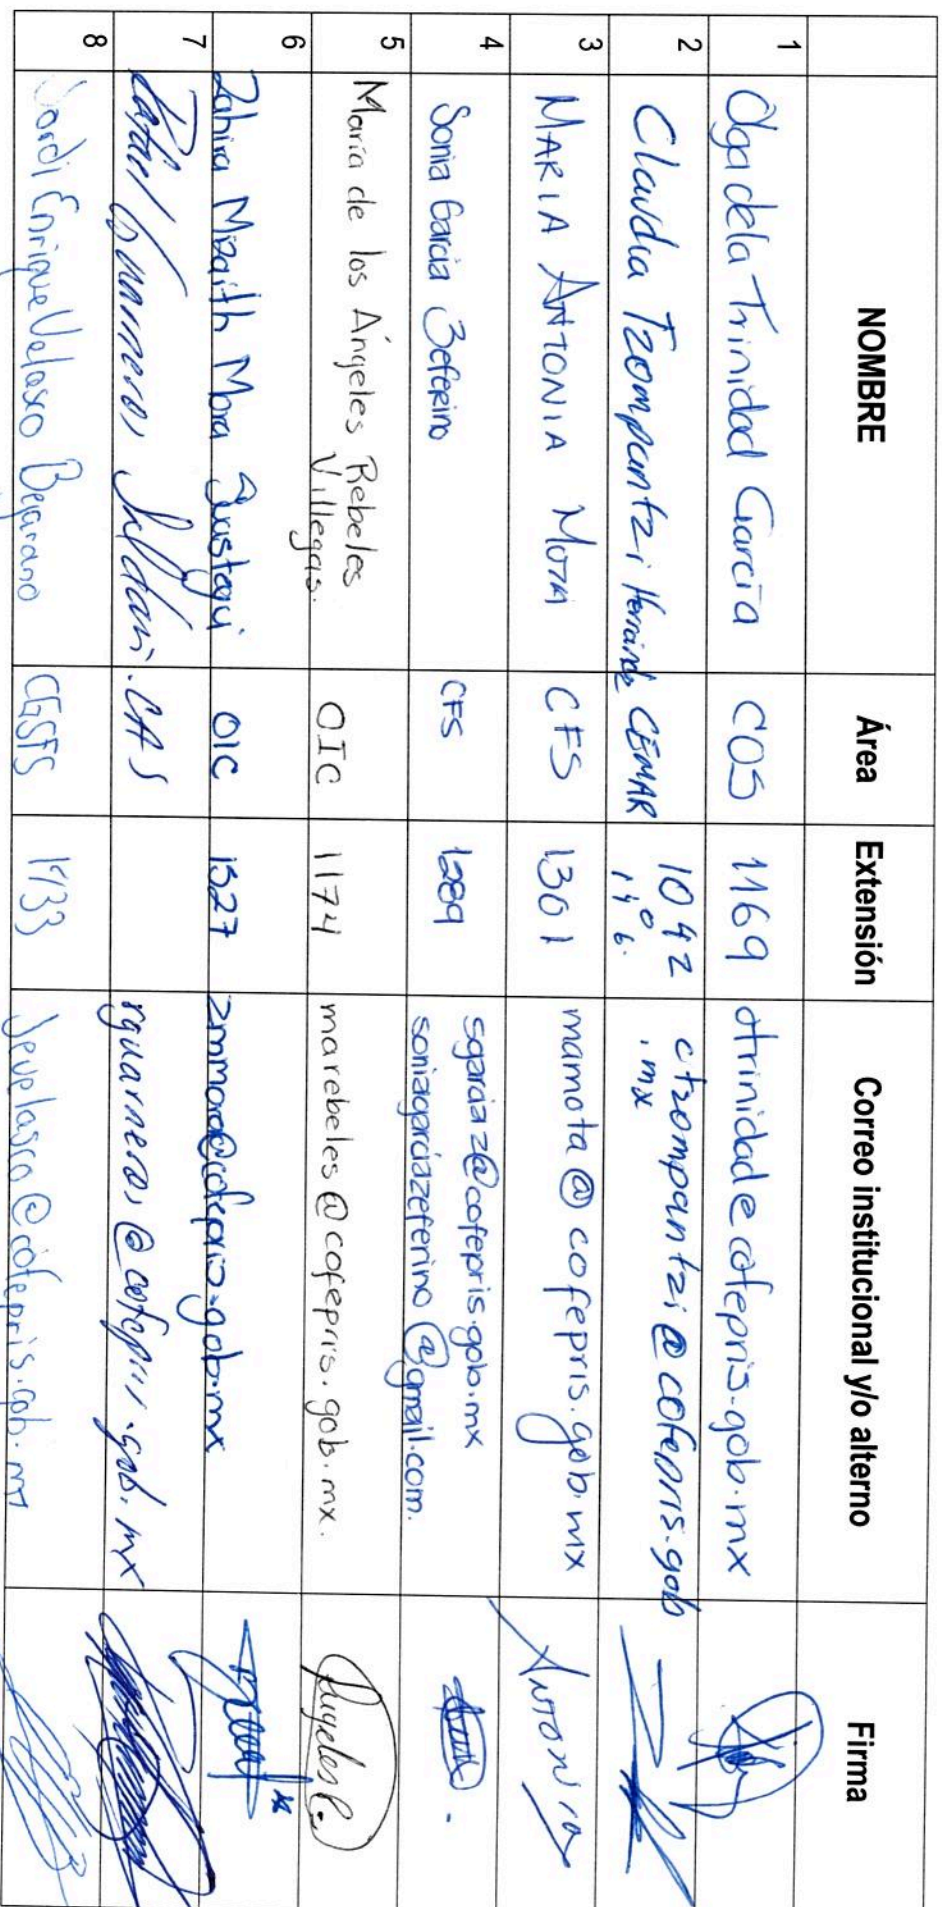 NOMBRE Área Extensión Correo institucional y/o alterno Firma
1 Olga de la Trinidad García COS 1169 otrinidad@cofepris.gob.mx
2 Claudia Tzompantzi Hernández CEMAR 1042 ctzompantzi@cofepris.gob
.mx
3 MARIA ANTONIA MOTA CFS 1301 mamota@cofepris.gob.mx ANTONIA
4 Sonia Garcia Zeferino CFS 1289 sgarciaz@cofepris.gob.mx
soniagarciazeferino@gmail.com.
5 María de los Ángeles Rebeles OIC 1174 marebeles@cofepris.gob.mx. Angeles R.
Villegas.
6 Zahira Mizaith Mora OIC 1527 zmmora@cofepris.gob.mx
7 Rafael CAS @cofepris.gob.mx
8 Jordi Enrique Velasco Bejarano CGSFS 1733 jevelasco@cofepris.gob.mx